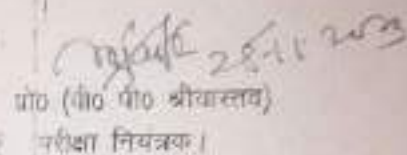 28-11 2003
प्रो० (वी० पी० श्रीवास्तव)
परीक्षा नियंत्रक।